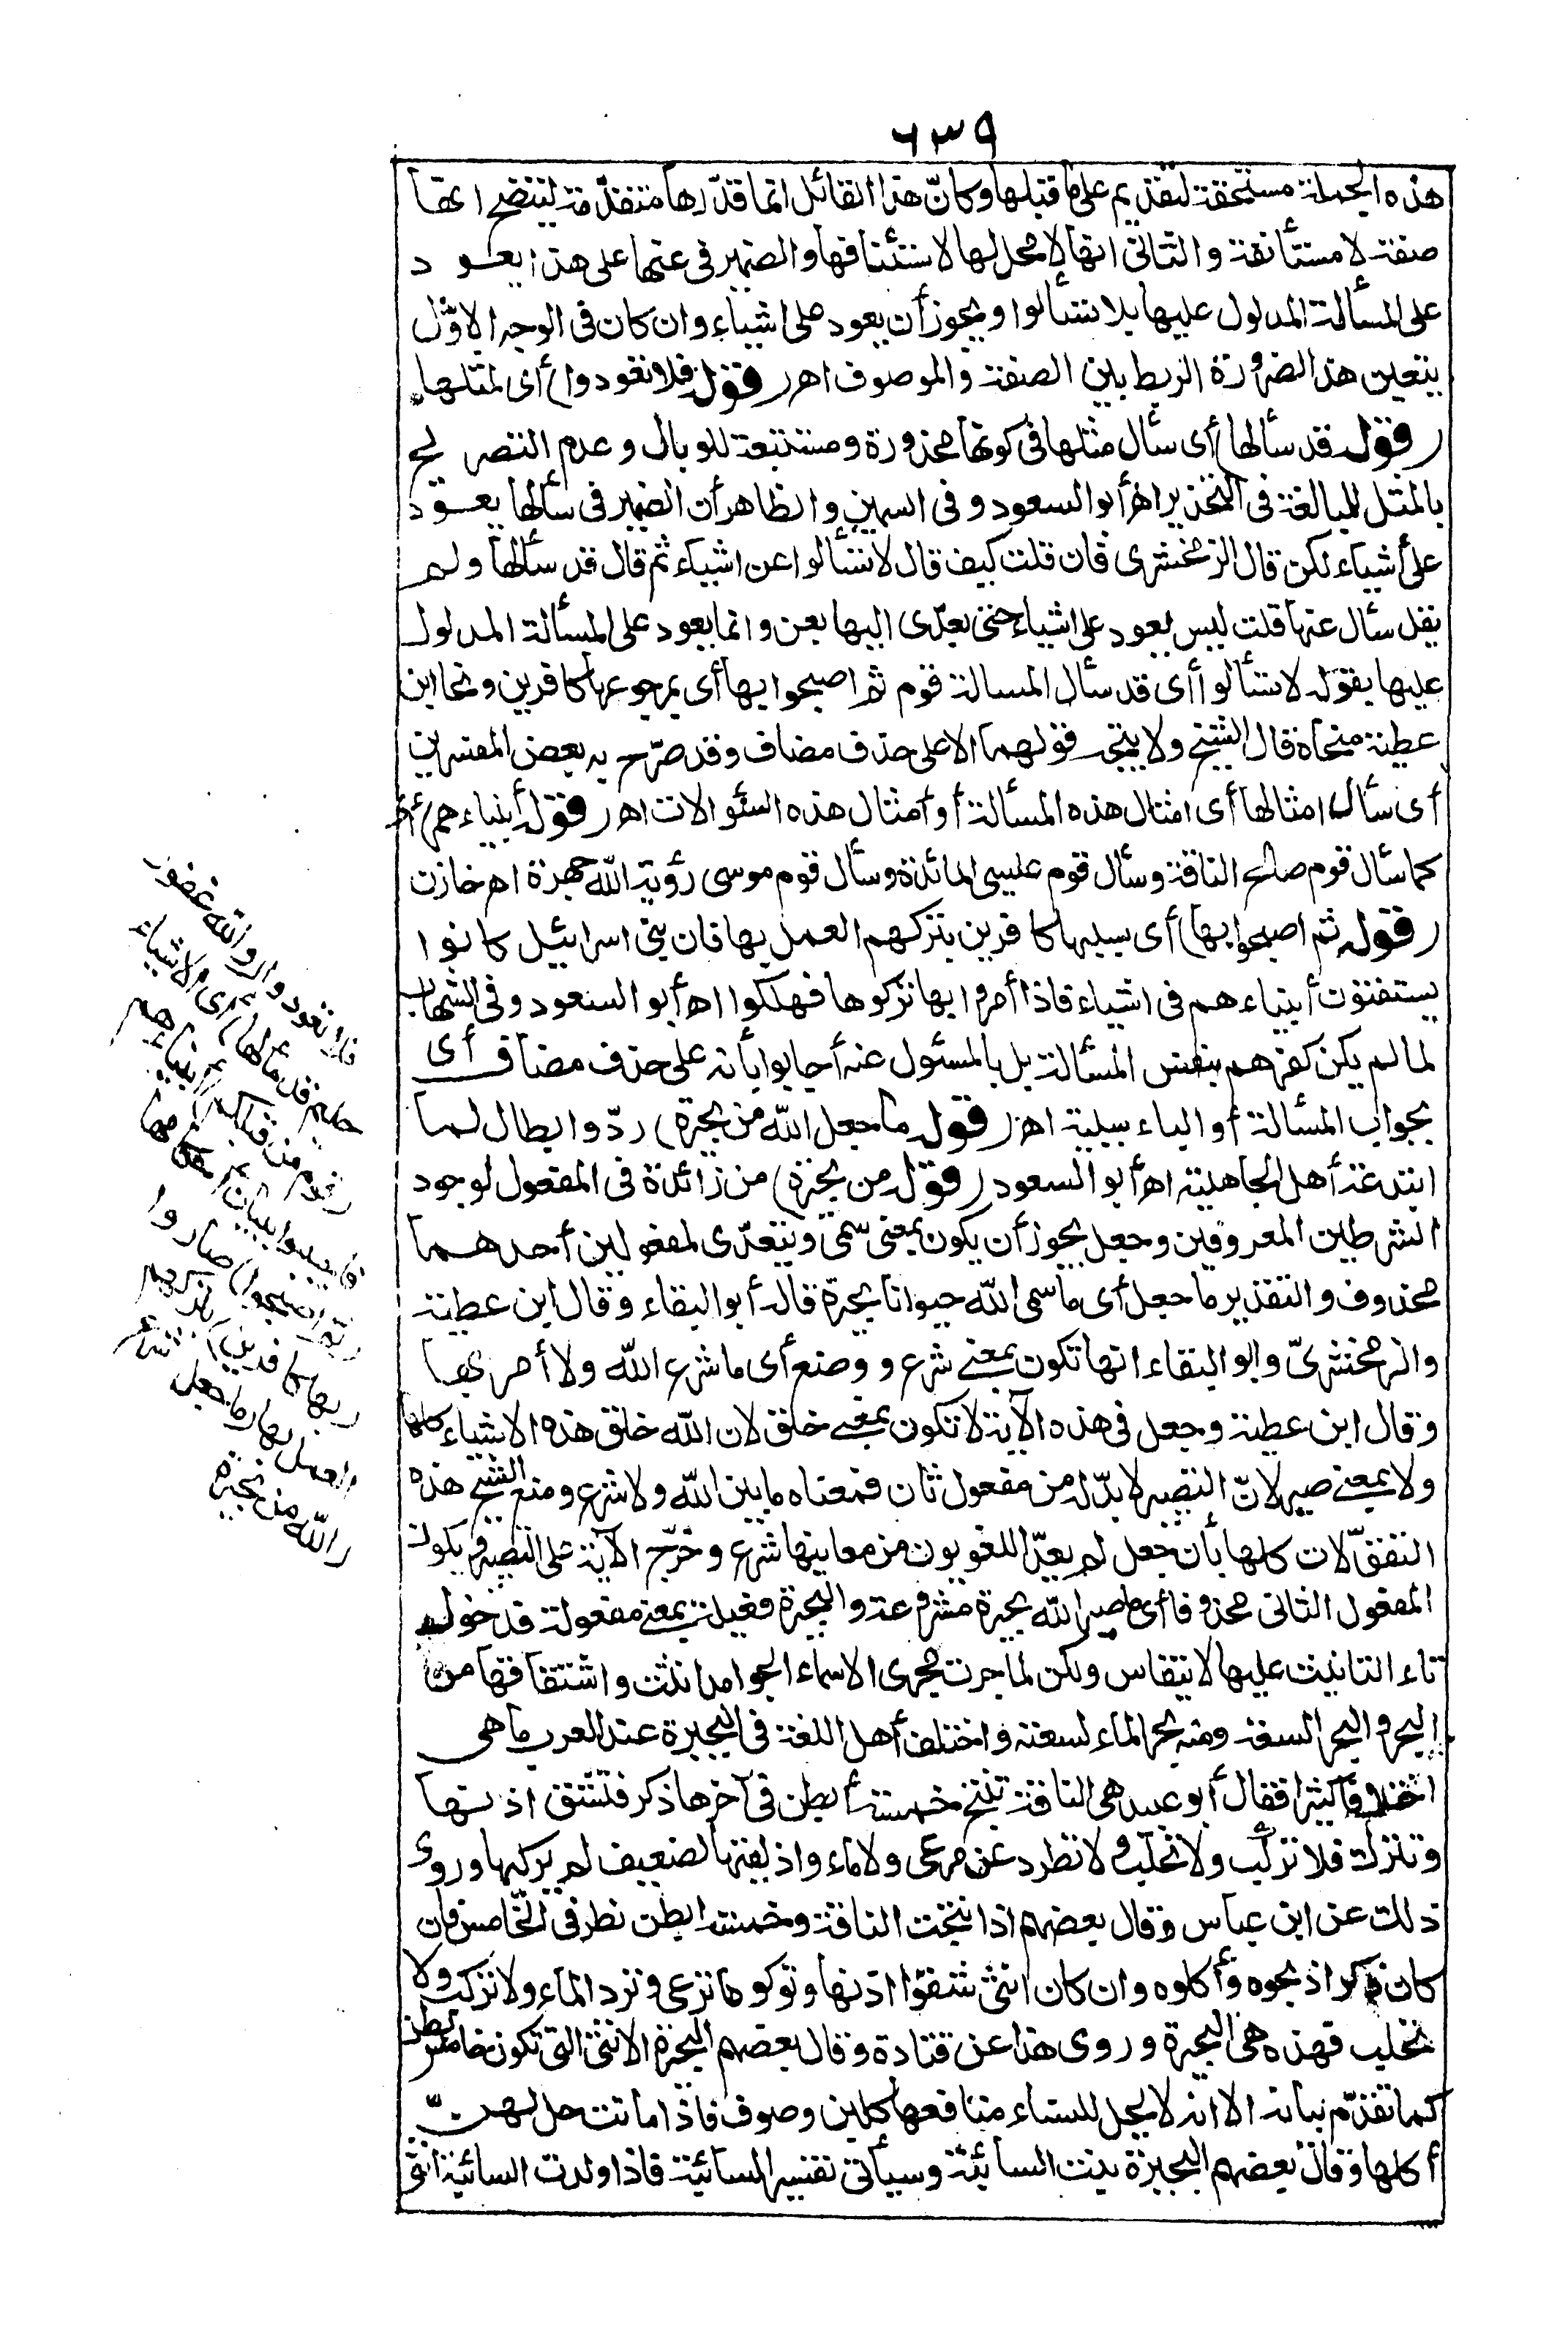 ٦٣٩
هذه الجملة مستحقة لتقديم على ما قبلها وكانّ هذا القائل انما قدّرها متقدّمة ليتضح انها
صفة لا مستأنفة والثانى انها لا محل لها لاستئنافها والضمير فى عنها على هذا يعود
على المسألة المدلول عليها بلا تسألوا ويجوز أن يعود على اشياء وان كان فى الوجه الاوّل
يتعين هذا لضرورة الربط بين الصفة والموصوف اهـ (قوله فلا تعودوا) أى لمثلها
(قوله قد سألها) أى سأل مثلها فى كونها محذورة ومستتبعة للوبال وعدم التصريح
بالمثل للمبالغة فى التحذير اهـ أبو السعود وفى السمين والظاهر أن الضمير فى سألها يعود
على أشياء لكن قال الزمخشرى فان قلت كيف قال لا تسألوا عن اشياء ثم قال قد سألها ولم
يقل سأل عنها قلت ليس يعود على اشياء حتى يعدّى اليها بعن وانما يعود على المسألة المدلول
عليها بقوله لا تسألوا أى قد سأل المسالة قوم ثم اصبحوا بها أى بمرجوعها كافرين ونحا ابن
عطية منحاه قال الشيخ ولا يتجه قولهما الا على حذف مضاف وقد صرّح به بعض المفسرين
أى سأل امثالها أى امثال هذه المسألة أو أمثال هذه السئوالات اهـ (قوله أنبياءهم) أى
كما سأل قوم صالح الناقة وسأل قوم عيسى المائدة وسأل قوم موسى رؤية الله جهرة اهـ خازن
(قوله ثم اصبحوا بها) أى بسببها كافرين بتركهم العمل بها فان بنى اسرائيل كانوا
يستفتون أنبياءهم فى اشياء فاذا أمروا بها تركوها فهلكوا اهـ أبو السعود وفى الشهاب
لما لم يكن كفرهم بنفس المسألة بل بالمسئول عنه أجابوا بأنه على حذف مضاف أى
بجواب المسألة أو الباء سببية اهـ (قوله ما جعل الله من بحيرة) ردّ وابطال لما
ابتدعه أهل الجاهلية اهـ أبو السعود (قوله من بحيرة) من زائدة فى المفعول لوجود
الشرطين المعروفين وجعل يجوز أن يكون بمعنى سمّى ويتعدّى لمفعولين أحدهما
محذوف والتقدير ما جعل أى ما سمى الله حيوانا بحيرة قاله أبو البقاء وقال ابن عطية
والزمخشرىّ وابو البقاء انها تكون بمعنى شرع ووضع أى ما شرع الله ولا أمر بها
وقال ابن عطية وجعل فى هذه الآية لا تكون بمعنى خلق لان الله خلق هذه الاشياء كلها
ولا بمعنى صير لانّ التصيير لا بدّ له من مفعول ثان فمعناه ما بين الله ولا شرع ومنع الشيخ هذه
النقولات كلها بأن جعل لم يعدّ اللغويون من معانيها شرع وخرّج الآية على التصيير ويكون
المفعول الثانى محذوفا أى ما صير الله بحيرة مشروعة والبحيرة فعيلة بمعنى مفعولة فدخول
تاء التانيث عليها لا ينقاس ولكن لما جرت مجرى الاسماء الجوامد انثت واشتقاقها من
البحر والبحر السعة ومنه بحر الماء لسعته واختلف أهل اللغة فى البحيرة عند العرب ما هى
اختلافا كثيرا فقال أبو عبيد هى الناقة تنتج خمسة أبطن فى آخرها ذكر فتشق اذنها
وتترك فلا تركب ولا تحلب ولا تطرد عن مرعى ولا ماء واذ لقيها الضعيف لم يركبها وروى
ذلك عن ابن عباس وقال بعضهم اذا نتجت الناقة وخمسة ابطن نظر فى الخامس فان
كان ذكرا ذبحوه وأكلوه وان كان انثى شقوا اذنها وتركوها ترعى وترد الماء ولا تركب ولا
تحلب فهذه هى البحيرة وروى هذا عن قتادة وقال بعضهم البحيرة الانثى التى تكون خامس بطن
كما تقدّم بيانه الا انه لا يحل للنساء منافعها كلبن وصوف فاذا ماتت حل لهنّ
أكلها وقال بعضهم البحيرة بنت السائبة وسيأتى تفسير السائبة فاذا ولدت السائبة انثى
فلا تعودوا (والله غفور
حليم قد سألها) أى الاشياء
(قوم من قبلكم) أنبياءهم
فأجيبوا ببيان أحكامها
(ثم اصبحوا) صاروا
(بها كافرين) بتركهم
العمل بها (ما جعل) شرع
(الله من بحيرة